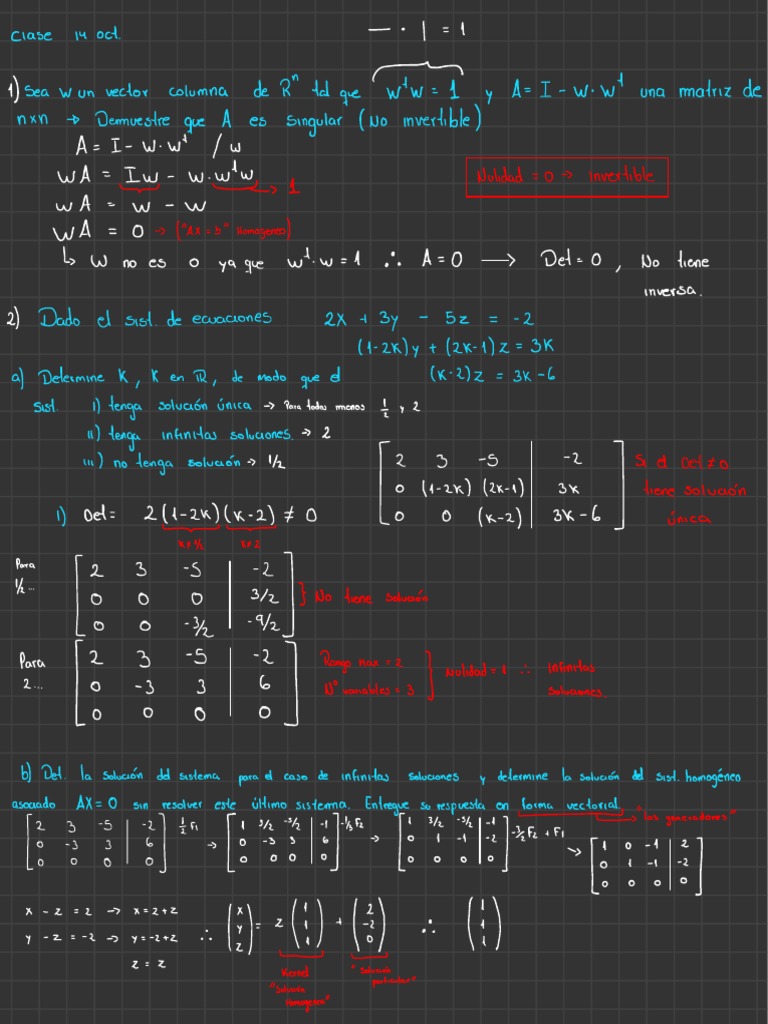 Clase 14 oct.
— · | = 1
1) Sea w un vector columna de Rⁿ tal que wᵗw = 1 y A = I - w·wᵗ una matriz de
nxn → Demuestre que A es singular (No invertible)
A = I - w·wᵗ / w
wA = Iw - w·wᵗw
1
Nulidad = 0 → invertible
wA = w - w
wA = 0 → ("AX = 3" Homogeneo)
↳ w no es 0 ya que wᵗ·w = 1 ∴ A = 0 → Det = 0, No tiene
inversa.
2) Dado el sist. de ecuaciones 2x + 3y - 5z = -2
(1-2k)y + (2k-1)z = 3k
(k-2)z = 3k-6
a) Determine k, k en R, de modo que el
sist. i) tenga solución única → Para todos menos 1/2 y 2
ii) tenga infinitas soluciones. → 2
iii) no tenga solución → 1/2
2 3 -5 | -2
0 (1-2k) (2k-1) | 3k
0 0 (k-2) | 3k-6
Si el Det ≠ 0
tiene solución
única
i) Det = 2(1-2k)(k-2) ≠ 0
k ≠ 1/2 k ≠ 2
Para
1/2 ...
2 3 -5 | -2
0 0 0 | 3/2
0 0 -3/2 | -9/2
} No tiene solución
Para
2...
2 3 -5 | -2
0 -3 3 | 6
0 0 0 | 0
Rango max = 2
N° variables = 3
} Nulidad = 1 ∴ infinitas
soluciones.
b) Det. la solución del sistema para el caso de infinitas soluciones y determine la solución del sist. homogéneo
asociado AX = 0 sin resolver este último sistema. Entregue su respuesta en forma vectorial.
"los generadores"
2 3 -5 | -2
0 -3 3 | 6
0 0 0 | 0
1/2 F1
→
1 3/2 -5/2 | -1
0 -3 3 | 6
0 0 0 | 0
-1/3 F2
→
1 3/2 -5/2 | -1
0 1 -1 | -2
0 0 0 | 0
-3/2 F2 + F1
→
1 0 -1 | 2
0 1 -1 | -2
0 0 0 | 0
x - z = 2 → x = 2+z
y - z = -2 → y = -2+z
z = z
∴ (x y z) = z (1 1 1) + (2 -2 0) ∴ (1 1 1)
Kernel
"Solución
Homogenea"
"Solución
particular"